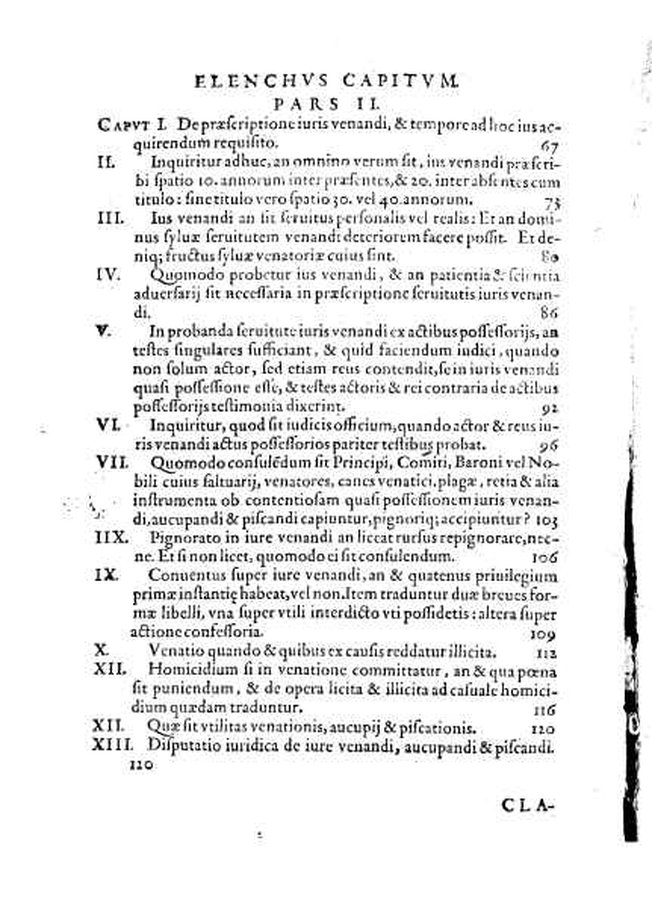 ELENCHVS CAPITVM.
PARS II.
CAPVT I. De præſcriptione iuris venandi, & tempore ad hoc ius ac-
quirendum requiſito. 67
II. Inquiritur adhuc, an omnino verum ſit, ius venandi præſcri-
bi ſpatio 10. annorum inter præſentes, & 20. inter abſentes cum
titulo: ſine titulo vero ſpatio 30. vel 40. annorum. 73
III. Ius venandi an ſit ſeruitus perſonalis vel realis: Et an domi-
nus ſyluæ ſeruitutem venandi deteriorem facere poſſit. Et de-
niq; fructus ſyluæ venatoriæ cuius ſint. 80
IV. Quomodo probetur ius venandi, & an patientia & ſcientia
aduerſarij ſit neceſſaria in præſcriptione ſeruitutis iuris venan-
di. 86
V. In probanda ſeruitute iuris venandi ex actibus poſſeſſorijs, an
teſtes ſingulares ſufficiant, & quid faciendum iudici, quando
non ſolum actor, ſed etiam reus contendit, ſe in iuris venandi
quaſi poſſeſſione eſſe, & teſtes actoris & rei contraria de actibus
poſſeſſorijs teſtimonia dixerint. 92
VI. Inquiritur, quod ſit iudicis officium, quando actor & reus iu-
ris venandi actus poſſeſſorios pariter teſtibus probat. 96
VII. Quomodo conſulēdum ſit Principi, Comiti, Baroni vel No-
bili cuius ſaltuarij, venatores, canes venatici, plagæ, retia & alia
inſtrumenta ob contentioſam quaſi poſſeſſionem iuris venan-
di, aucupandi & piſcandi capiuntur, pignoriq; accipiuntur? 103
IIX. Pignorato in iure venandi an liceat rurſus repignorare, nec-
ne. Et ſi non licet, quomodo ei ſit conſulendum. 106
IX. Conuentus ſuper iure venandi, an & quatenus priuilegium
primæ inſtantię habeat, vel non. Item traduntur duæ breues for-
mæ libelli, vna ſuper vtili interdicto vti poſſidetis: altera ſuper
actione confeſſoria. 109
X. Venatio quando & quibus ex cauſis reddatur illicita. 112
XII. Homicidium ſi in venatione committatur, an & qua pœna
ſit puniendum, & de opera licita & illicita ad caſuale homici-
dium quædam traduntur. 116
XII. Quæ ſit vtilitas venationis, aucupij & piſcationis. 120
XIII. Diſputatio iuridica de iure venandi, aucupandi & piſcandi.
120
CLA-